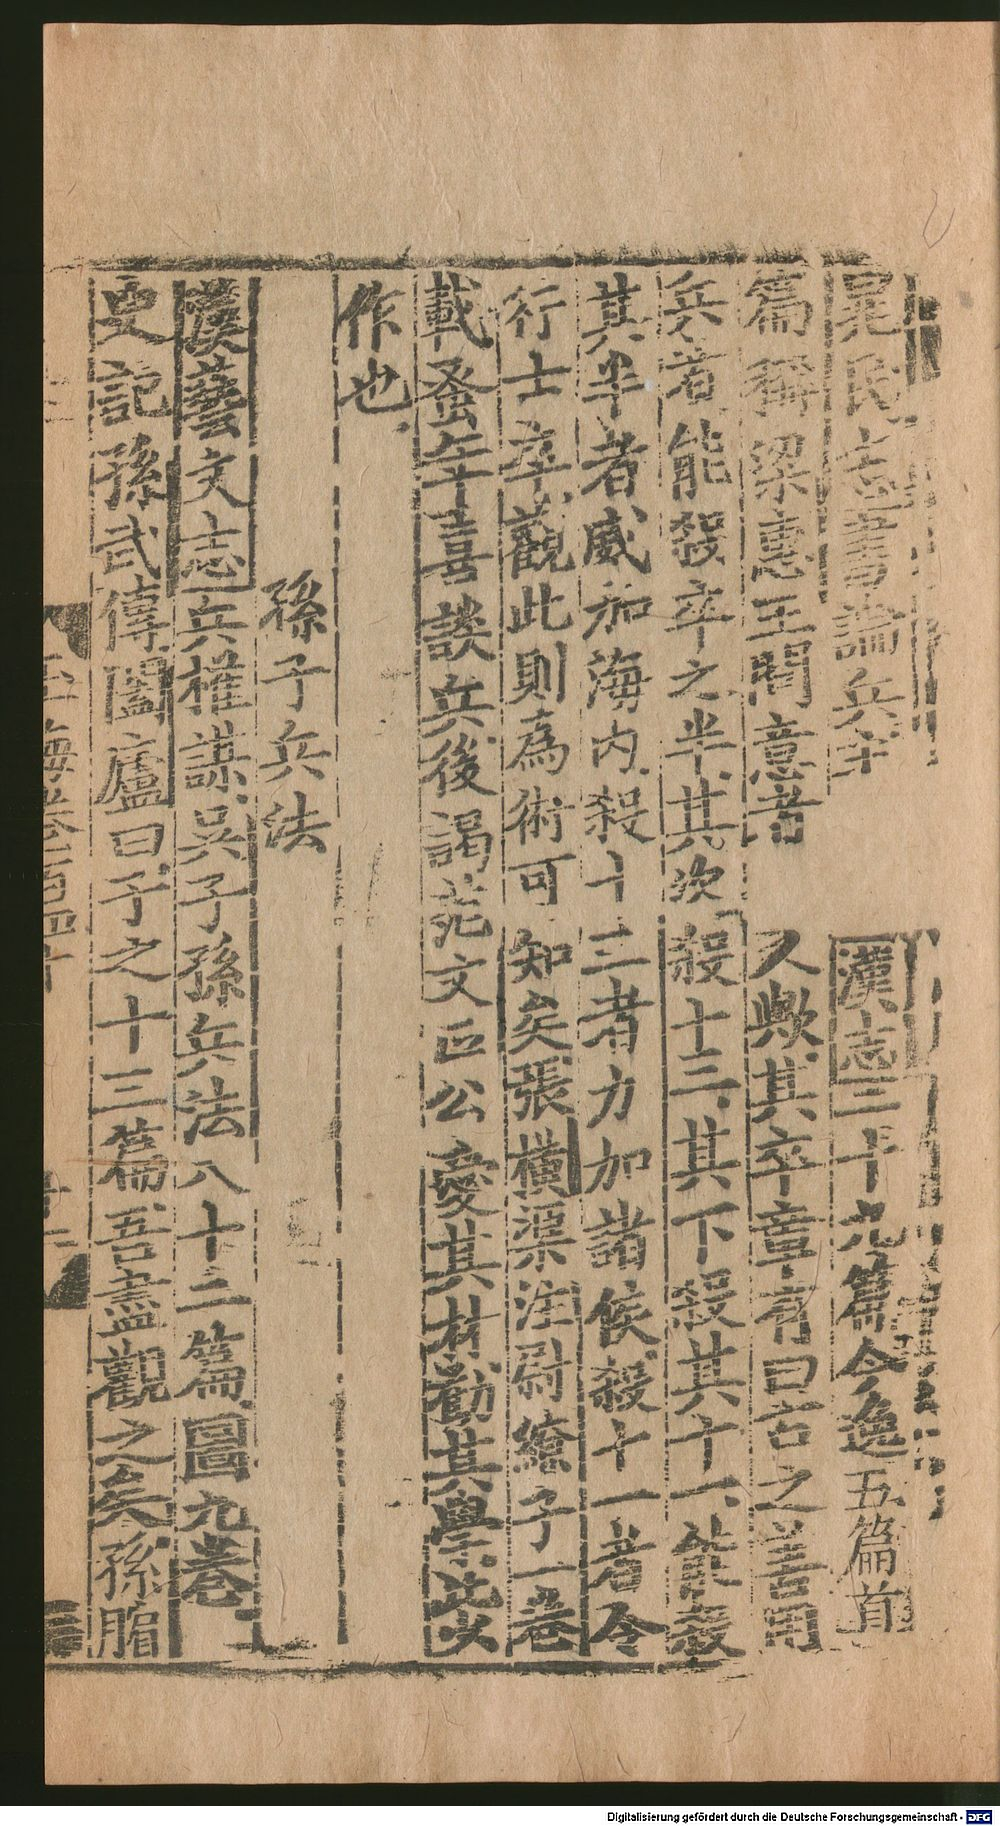 晁氏志書論兵主 漢志三十九篇今逸五篇首
篇稱梁惠王問意者 人歟其卒章有曰古之善用
兵者能殺卒之半其次殺十三其下殺其十一能殺
其半者威加海內殺十三者力加諸侯殺十一者令
行士卒觀此則為術可知矣張橫渠注尉繚子一卷
載蚤年喜談兵後謁范文正公愛其材勸其學此少
作也
孫子兵法
漢藝文志兵權謀吳孫子兵法八十二篇圖九卷
史記孫武傳闔廬曰子之十三篇吾盡觀之矣孫臏
玉海卷一百四十
Digitalisierung gefördert durch die Deutsche Forschungsgemeinschaft - DFG